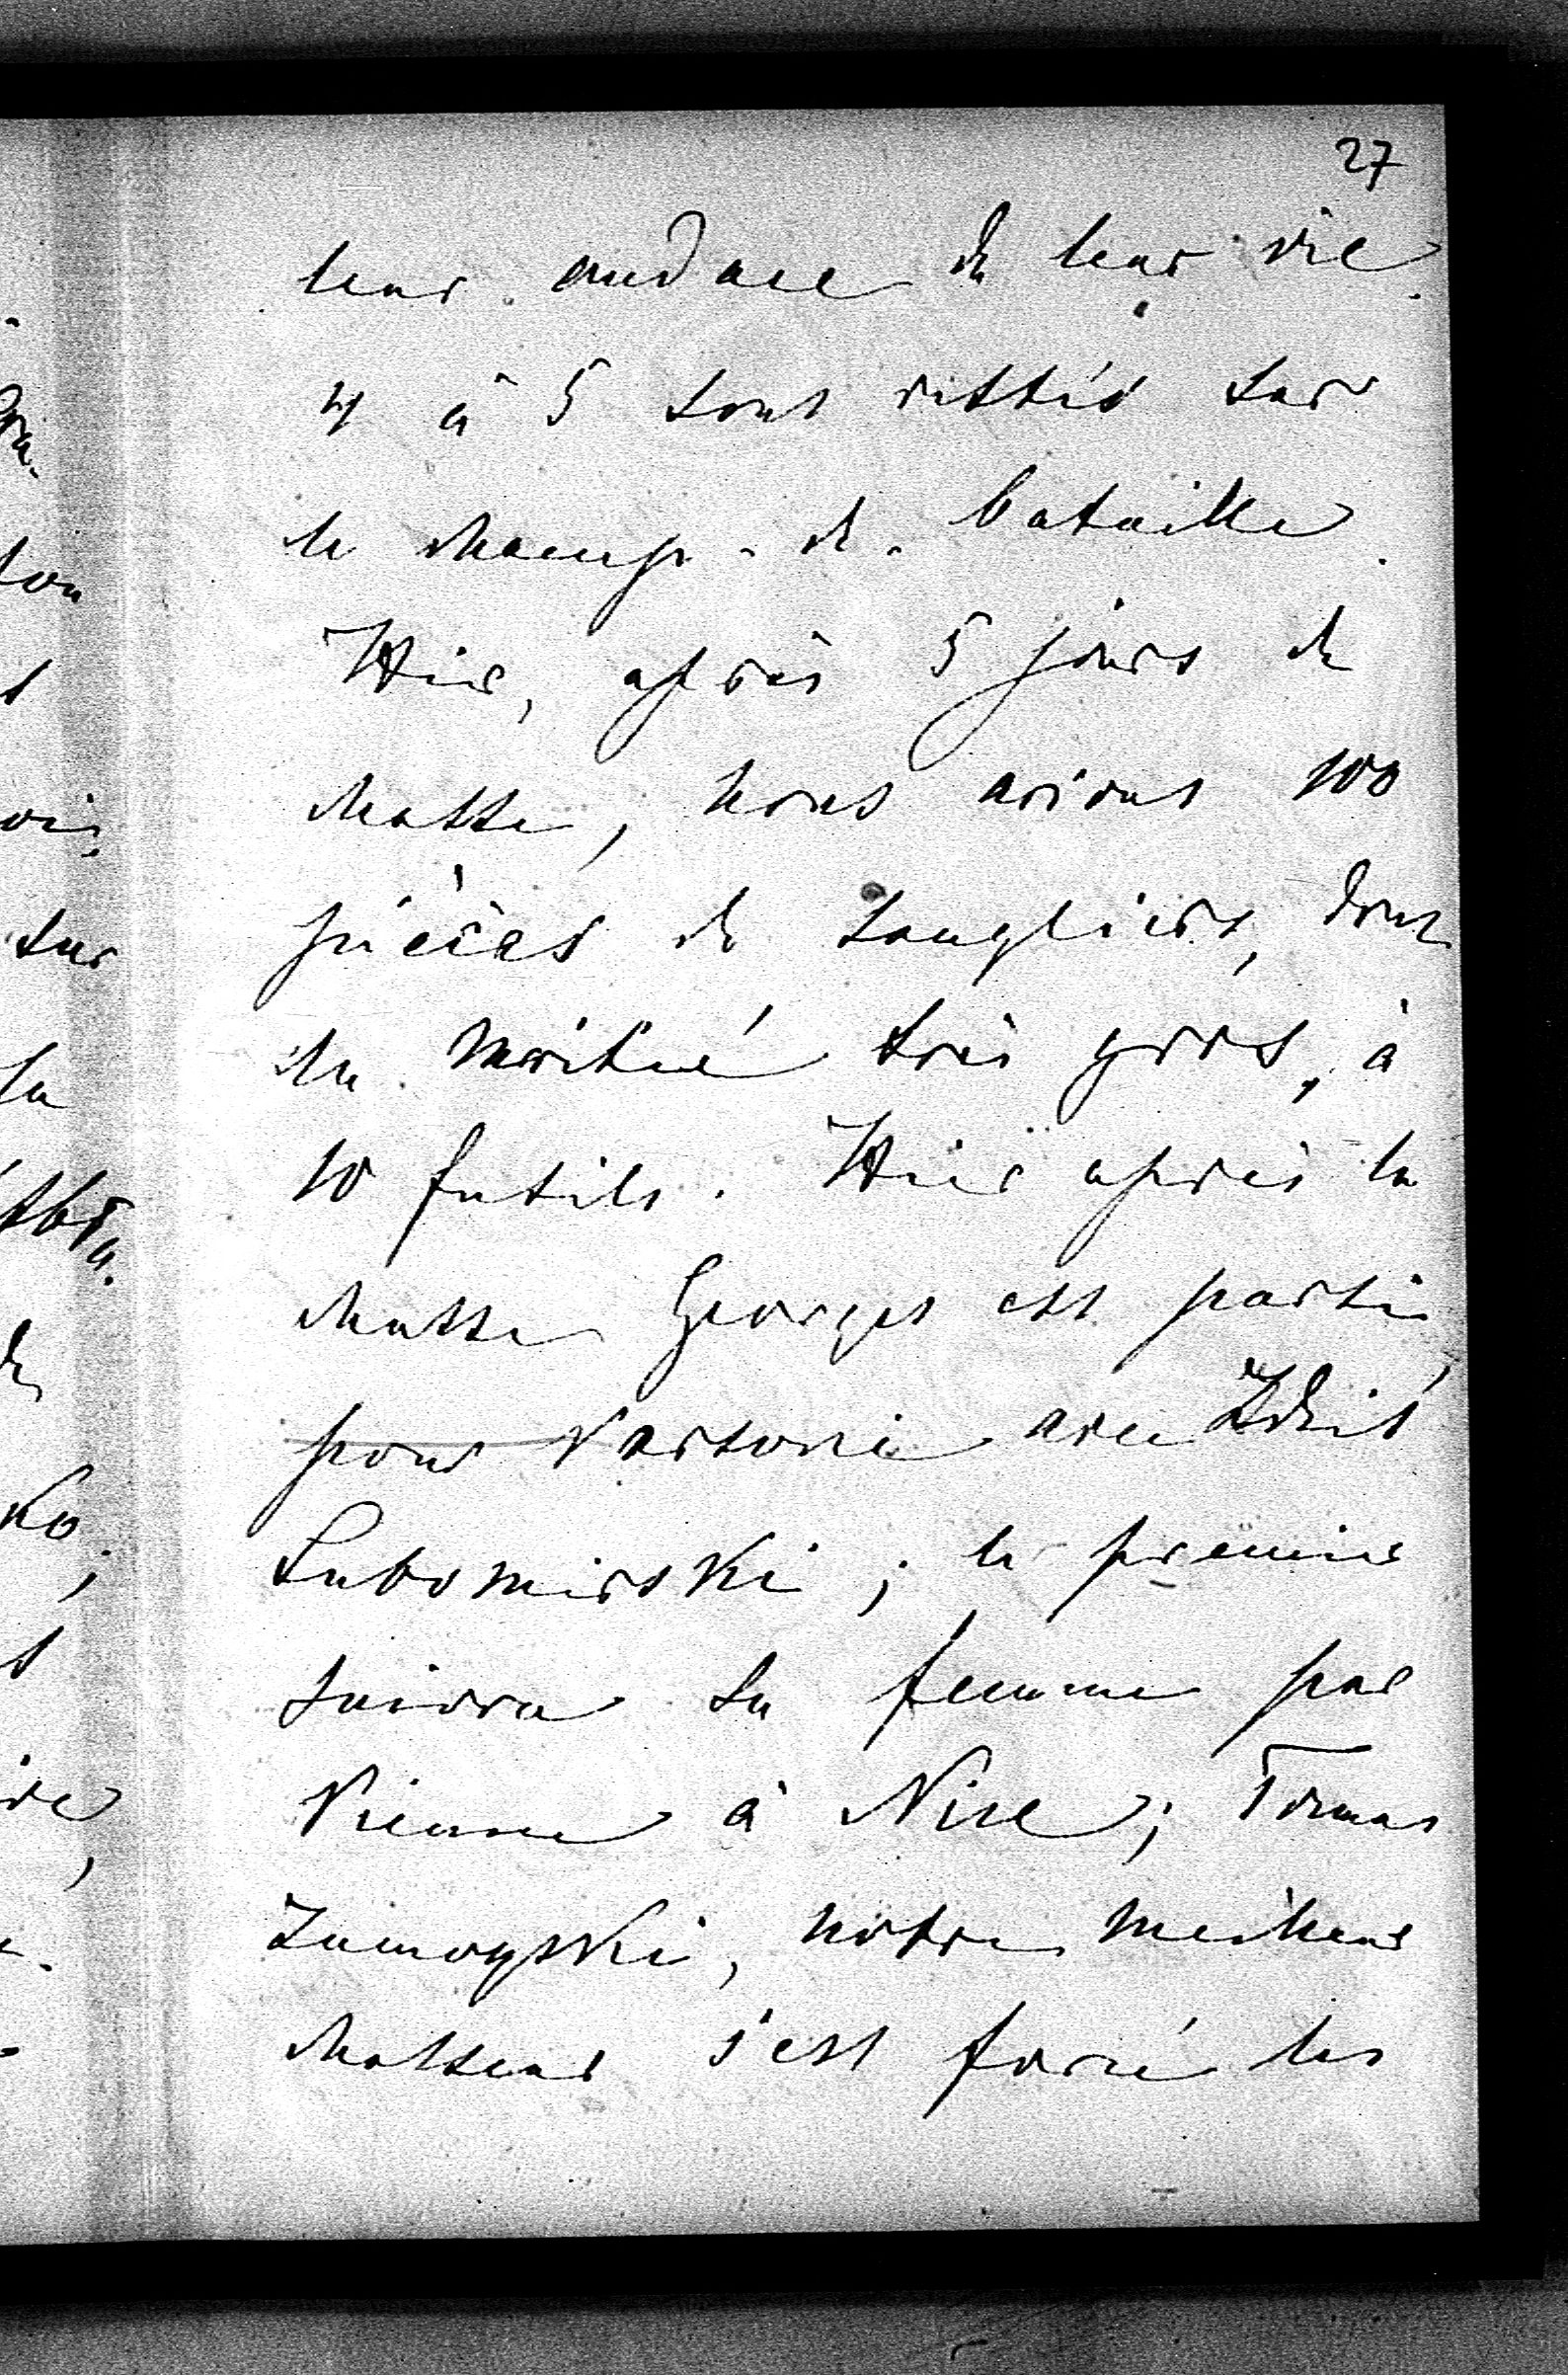 27
leur audace de leur vie.
4 à 5 sont restés sur
le champ-de-bataille.
Hier, après 5 jours de
chasse, nous avions 100
pièces de sangliers, dont
la moitié très gros, à
10 fusils. Hier après la
chasse Georges est parti
pour Varsovie avec Zdzis
Lubomirski; le premier
suivra sa femme par
Vienne à Nice; Tomas
Zamoyski, notre meilleur
chasseur s'est foré les